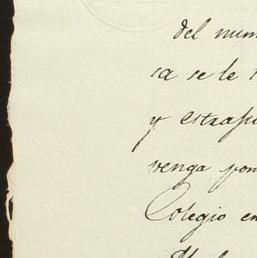 del num
sa se le
y estrap
venga pon
Colegio en